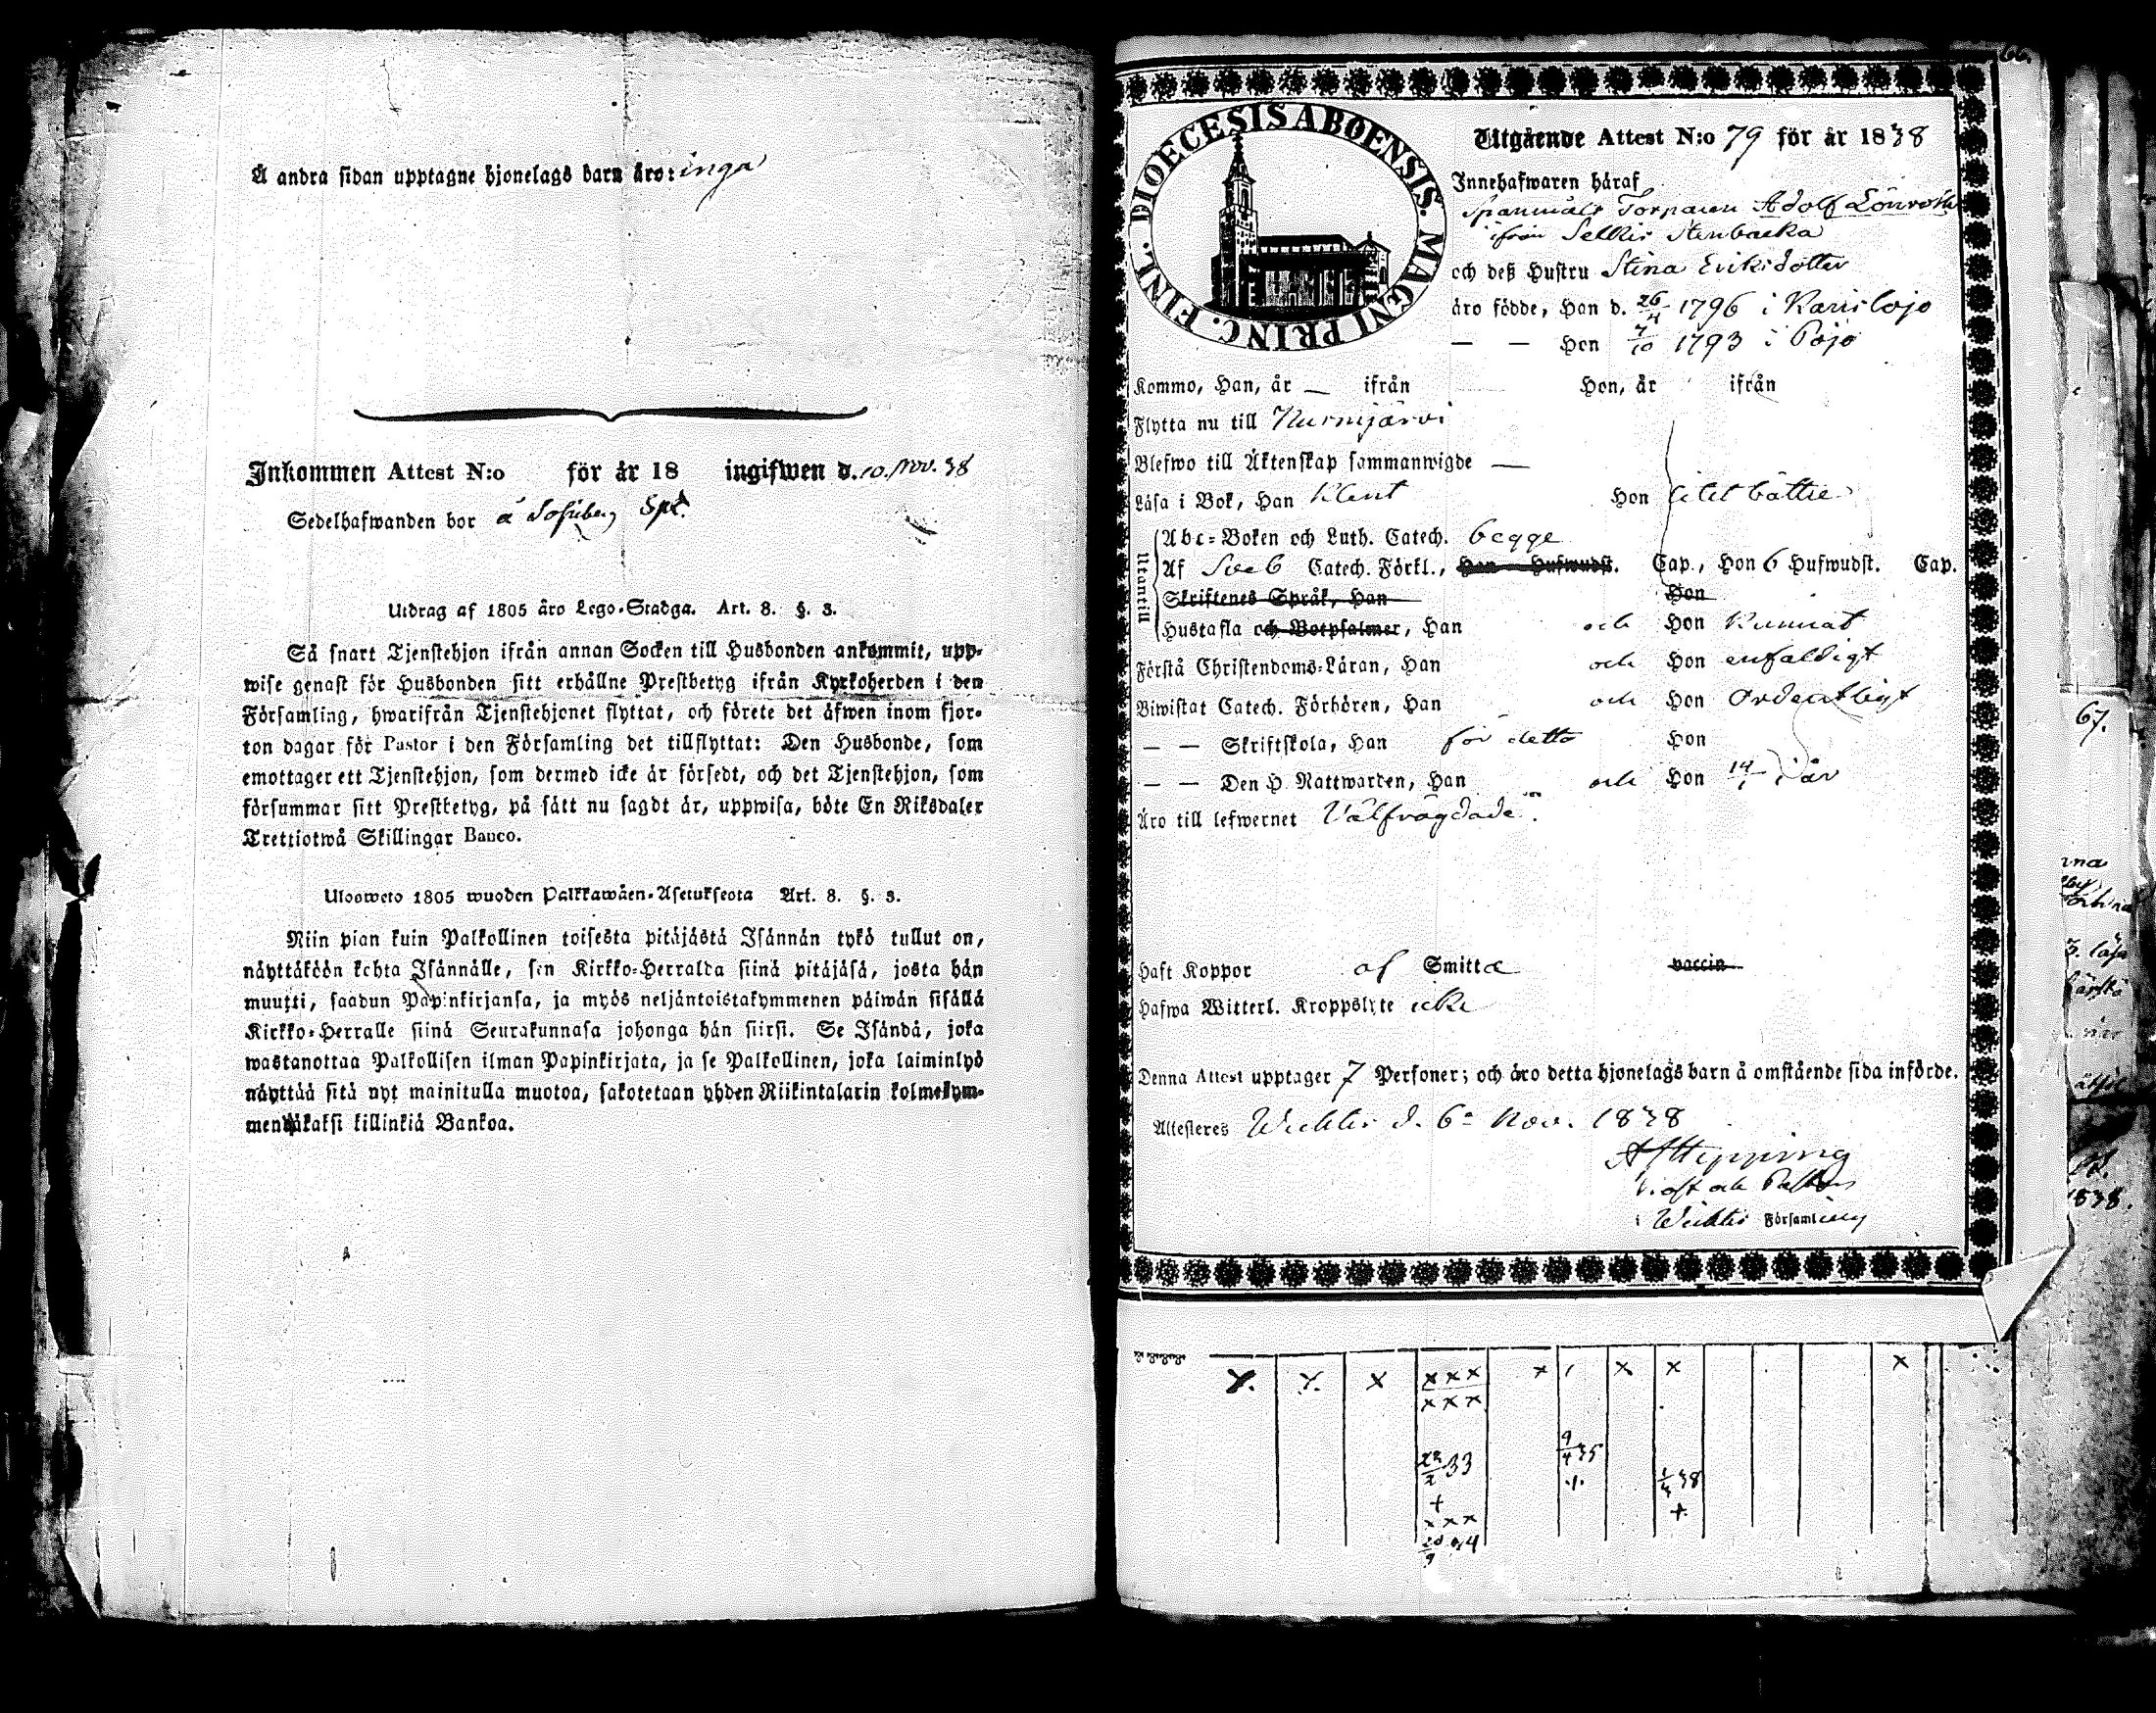 Å andra sidan upptagne hjonelags barn äro: inga
Inkommen Attest N:o för år 18 ingifwen d. 10. Nov. 38
Sedelhafwanden bor å
Utdrag af 1805 års Lego-Stadga. Art. 8. §. 3.
Så snart Tjenstehjon ifrån annan Socken till Husbonden ankommit, upp-
wise genast för Husbonden sitt erhållne Prestbetyg ifrån Kyrkoherden i den
Församling, hwarifrån Tjenstehjonet flyttat, och förete det äfwen inom fjor-
ton dagar för Pastor i den Församling det tillflyttat: Den Husbonde, som
emottager ett Tjenstehjon, som dermed icke är försedt, och det Tjenstehjon, som
försummar sitt Prestbetyg, på sätt nu sagdt är, uppwisa, böte En Riksdaler
Trettiotwå Skillingar Banco.
Ulosweto 1805 wuoden Palkkawäen-Asetuksesta Art. 8. §. 3.
Niin pian kuin Palkollinen toisesta pitäjästä Isännän tykö tullut on,
näyttäköön kohta Isännälle, sen Kirkko-Herralda siinä pitäjäsä, josta hän
muutti, saadun Papinkirjansa, ja myös neljäntoistakymmenen päiwän sisällä
Kirkko-Herralle siinä Seurakunnasa johonga hän siirsi. Se Isändä, joka
wastanottaa Palkollisen ilman Papinkirjata, ja se Palkollinen, joka laiminlyö
näyttää sitä nyt mainitulla muotoa, sakotetaan yhden Riikintalarin kolmekym-
mendäkaksi killinkiä Bankoa.
DIOECESIS ABOENSIS. MAGNI PRINC. FINL.
Utgående Attest N:o 79 för år 1838
Innehafwaren häraf
Torparen Adolf Lönroth
ifrån Selkis Stenbacka
och deß Hustru Stina Eriksdotter
äro födde, Han d. 26/4 1796 i Karislojo
— — Hon 7/10 1793 i Pojo
Kommo, Han, år — ifrån Hon, år ifrån
Flytta nu till Nurmijärvi
Blefwo till Äktenskap sammanwigde —
Läsa i Bok, Han Klent Hon litet bättre
Utantill
Abc-Boken och Luth. Catech. begge
Af Sveb Catech. Förkl., Han Hufwudst. Cap., Hon 6 Hufwudst. Cap.
Skriftenes Språk, Han Hon
Hustafla och Botpsalmer, Han och Hon Kunnat
Förstå Christendoms-Läran, Han och Hon enfaldigt
Biwistat Catech. Förhören, Han och Hon Ordentligt
— — Skriftskola, Han för detta Hon
— — Den H. Nattwarden, Han och Hon i år
Äro till lefwernet Välfrägdade.
Haft Koppor af Smitta vaccin
Hafwa Witterl. Kroppslyte icke
Denna Attest upptager 7 Personer; och äro detta hjonelags barn å omstående sida införde.
Attesteres Wichtis d. 6 Nov. 1838
i Wichtis Församling
x x x x x x
x x x
22/2 33
9/4 35
1/4 38
67.
1838.